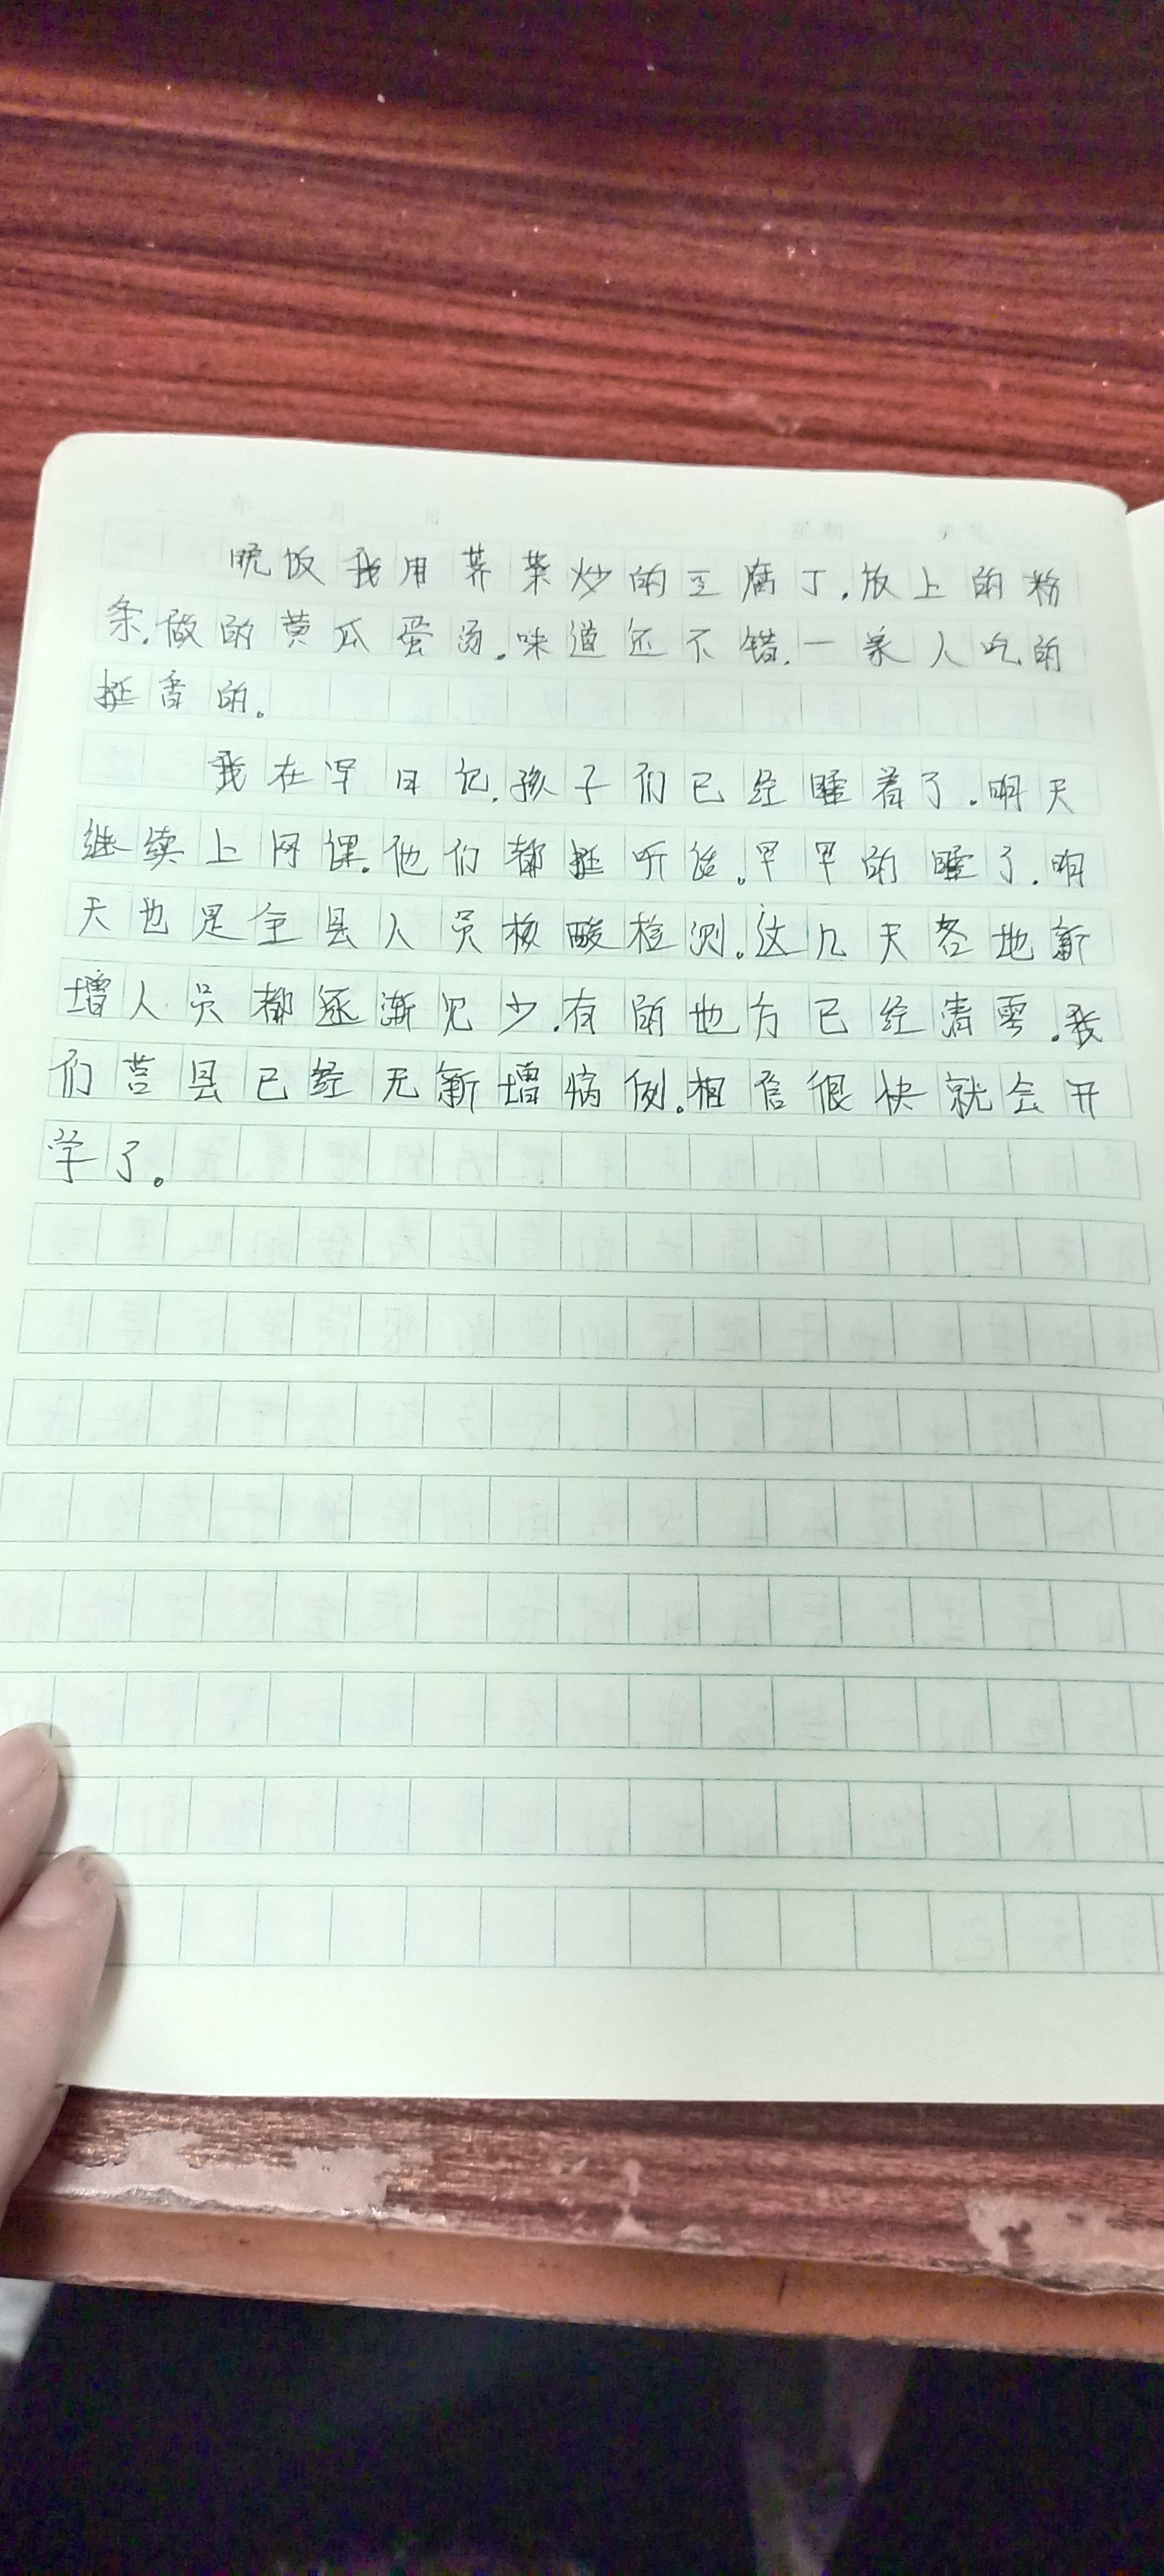 年 月 日 星期 天气
晚饭我用荠菜炒的豆腐丁.放上的粉
条.做的黄瓜蛋汤.味道还不错.一家人吃的
挺香的。
我在写日记.孩子们已经睡着了.明天
继续上网课.他们都挺听话。早早的睡了.明
天也是全县人员核酸检测。这几天各地新
增人员都逐渐见少.有的地方已经清零.我
们莒县已经无新增病例。相信很快就会开
学了。